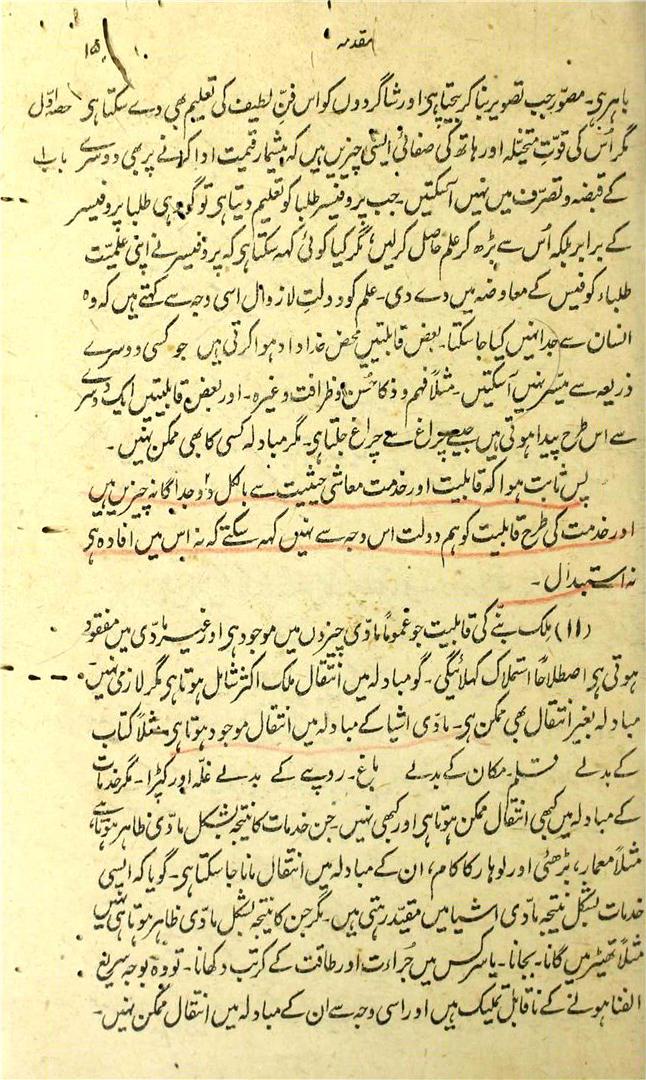 مقدمہ
۱۵
حصہ اوّل
باب ۱
باہر ہی۔ مصوّر جب تصویر بنا کر بیچتا ہی اور شاگردوں کو اس فنِّ لطیف کی تعلیم بھی دے سکتا ہی
مگر اُس کی قوّتِ متخیّلہ اور ہاتھ کی صفائی ایسی چیزیں ہیں کہ بیشمار قیمت ادا کرنے پر بھی دوسرے
کے قبضہ و تصرّف میں نہیں آسکتیں۔ جب پروفیسر طلبا کو تعلیم دیتا ہی تو گو وہی طلبا پروفیسر
کے برابر بلکہ اُس سے بڑھ کر علم حاصل کرلیں؛ مگر کیا کوئی کہہ سکتا ہی کہ پروفیسر نے اپنی علمیّت
طلباء کو فیس کے معاوضہ میں دے دی۔ علم کو دولتِ لازوال اسی وجہ سے کہتے ہیں کہ وہ
انسان سے جدا نہیں کیا جاسکتا۔ بعض قابلیتیں محض خداداد ہوا کرتی ہیں جو کسی دوسرے
ذریعہ سے میسّر نہیں آسکتیں۔ مثلاً فہم و ذکا حُسن و ظرافت وغیرہ۔ اور بعض قابلیتیں ایک دوسرے
سے اس طرح پیدا ہوتی ہیں جیسے چراغ سے چراغ جلتا ہی۔ مگر مبادلہ کسی کا بھی ممکن نہیں۔
پس ثابت ہوا کہ قابلیت اور خدمت معاشی حیثیت سے بالکل دو جداگانہ چیزیں ہیں
اور خدمت کی طرح قابلیت کو ہم دولت اس وجہ سے نہیں کہہ سکتے کہ نہ اس میں افادہ ہی
نہ استبدال۔
(۱۱) مِلک بننے کی قابلیت جو عموماً مادّی چیزوں میں موجود ہی اور غیر مادّی میں مفقود
ہوتی ہی اصطلاحاً استملاک کہلائیگی۔ گو مبادلہ میں انتقال ملک اکثر شامل ہوتا ہی مگر لازمی نہیں۔
مبادلہ بغیر انتقال بھی ممکن ہی۔ مادّی اشیا کے مبادلہ میں انتقال موجود ہوتا ہی مثلاً کتاب
کے بدلے قلم۔ مکان کے بدلے باغ۔ روپے کے بدلے غلّہ اور کپڑا۔ مگر خدمات
کے مبادلہ میں کبھی انتقال ممکن ہوتا ہی اور کبھی نہیں۔ جن خدمات کا نتیجہ بشکل مادّی ظاہر ہوتا ہے،
مثلاً معمار، بڑھئی اور لوہار کا کام، ان کے مبادلہ میں انتقال مانا جاسکتا ہی۔ گویا کہ ایسی
خدمات بشکل نتیجہ مادّی اشیا میں مقیّد رہتی ہیں۔ مگر جن کا نتیجہ بشکل مادّی ظاہر ہوتا ہی نہیں
مثلاً تھیٹر میں گانا۔ بجانا۔ یا سرکس میں جُراءت اور طاقت کے کرتب دکھانا۔ تو وہ بوجہ سریع
الفنا ہونے کے ناقابل تملیک ہیں اور اسی وجہ سے ان کے مبادلہ میں انتقال ممکن نہیں۔